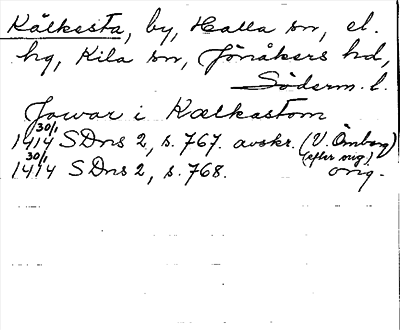 Kälkesta, by, Halla sn, el.
hg, Kila sn, Jönåkers hd,
Söderm. l.
Jowar i Kælkastom
30/1 1414 SDns 2, s. 767. avskr. (V. Örnberg)
(efter sig.)
30/1 1414 SDns 2, s. 768. orig.